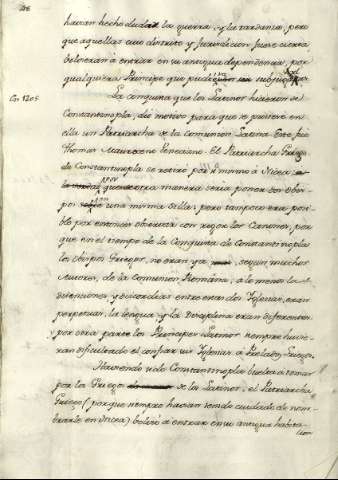 havian hecho dudar la guerra, y la tardanza; pero
que aquellas cuio distrito y Jurisdicion fuese cierta
debieran à entrar en su antigua dependencia, por
qualquiera Principe que
La conquista que los Latinos hicieron de
En 1205
Constantinopla, diò motivo para que se pusiese en
ella un Patriarcha de la comunion Latina. Este fuè
Thomas Maurocene Veneciano. El Patriarcha Griego
de Constantinopla se retirò por si mismo à Nicea
por que de otra manera seria poner dos Obis-
pos en una misma silla; pero tampoco era posi-
ble por entonces observar con rigor los Canones, por
que en el tiempo de la Conquista de Constantinopla
los Obispos Griegos, no eran ya segun muchos
Autores, de la comunion Romana; à lo menos las
disensiones, y discordias entre estas dos Iglesias, eran
perpetuas, la lengua, y la Disciplina eran diferentes.
por otra parte los Principes Latinos siempre huvie-
ran dificultado el confiar sus Iglesias à Prelados Griegos.
Haviendo sido Constantinopla buelta à tomar
por los Griegos de los Latinos, el Patriarcha
Griego (porque siempre havian tenido cuidado de nom-
brarle en Nicea) bolviò à entrar en su antigua habita-
cion